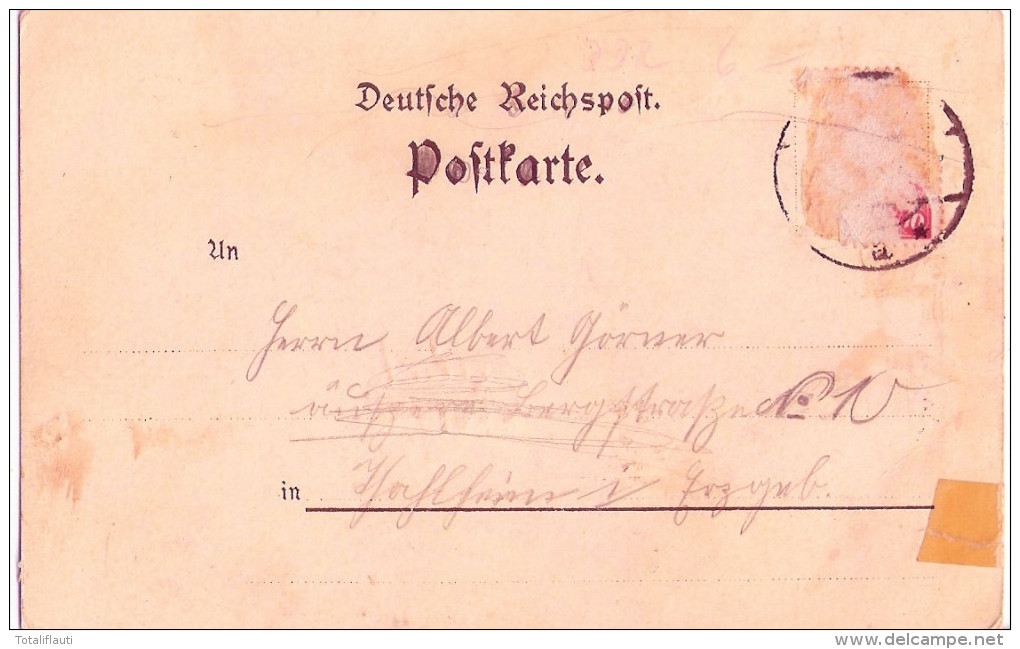 Deutsche Reichspost.
Postkarte.
An
Herrn Albert Görner
äußere Bergstraße No 10
in Thalheim i Erzgeb.
a *
Totaliflauti
www.delcampe.net